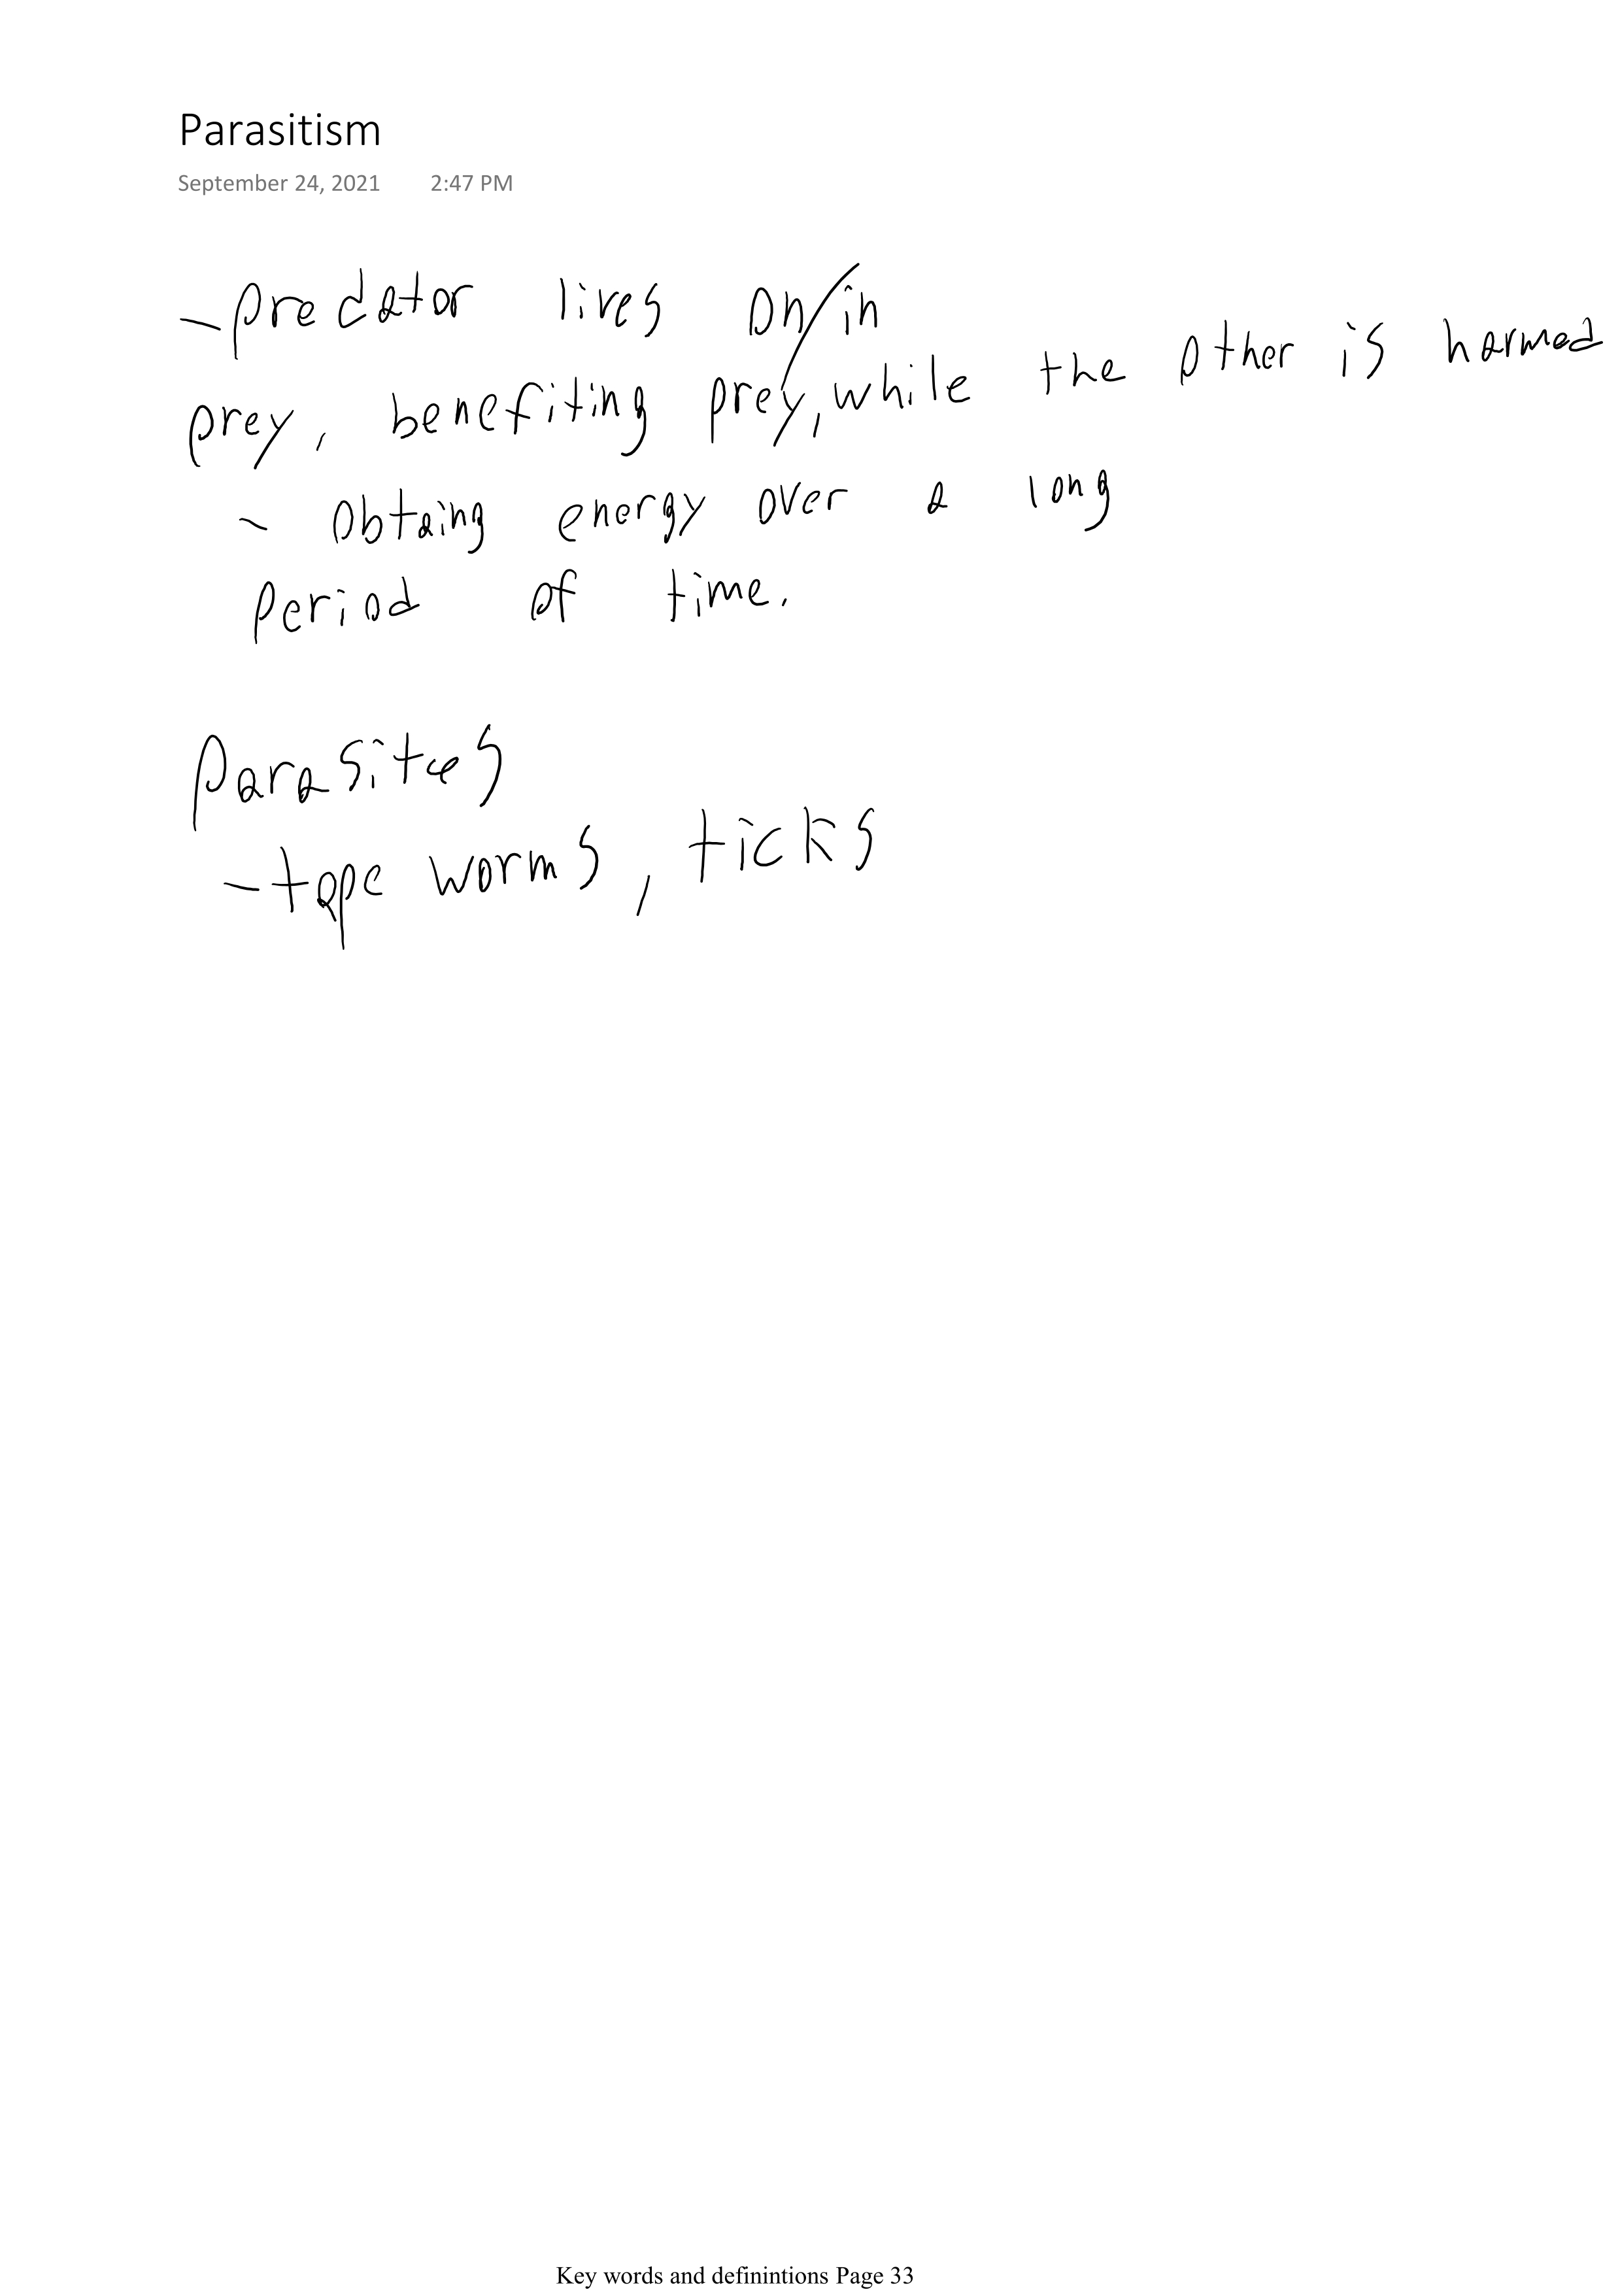 Parasitism
September 24, 2021 2:47 PM
-predator lives on/in
prey, benefiting prey, while the other is harmed
- Obtaing energy over a long
period of time.
Parasites
-tape worms, ticks
Key words and definintions Page 33